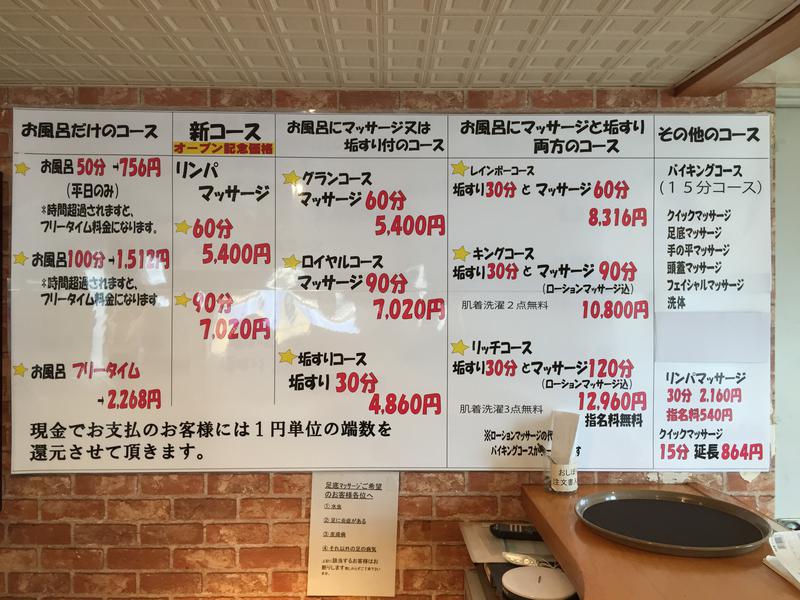 お風呂だけのコース
お風呂50分→756円
(平日のみ)
*時間超過されますと、
フリータイム料金になります。
お風呂100分→1,512円
*時間超過されますと、
フリータイム料金になります
お風呂 フリータイム
→2,268円
新コース
オープン記念価格
リンパ
マッサージ
60分
5,400円
90分
7,020円
お風呂にマッサージ又は
垢すり付のコース
グランコース
マッサージ 60分
5,400円
ロイヤルコース
マッサージ 90分
7,020円
垢すりコース
垢すり 30分
4,860円
お風呂にマッサージと垢すり
両方のコース
レインボーコース
垢すり30分と マッサージ60分
8,316円
キングコース
垢すり30分と マッサージ 90分
(ローションマッサージ込)
肌着洗濯2点無料 10,800円
リッチコース
垢すり30分とマッサージ120分
(ローションマッサージ込)
肌着洗濯3点無料 12,960円
指名料無料
※ローションマッサージの代
バイキングコースが
す
その他のコース
バイキングコース
(15分コース)
クイックマッサージ
足底マッサージ
手の平マッサージ
頭蓋マッサージ
フェイシャルマッサージ
洗体
リンパマッサージ
30分 2,160円
指名料540円
クイックマッサージ
15分 延長864円
現金でお支払のお客様には1円単位の端数を
還元させて頂きます。
足底マッサージご希望
のお客様各位へ
① 水虫
② 足に炎症がある
③ 皮膚病
④ それ以外の足の病気
上記に該当するお客様はお
断りします
おしぼ
注文書入